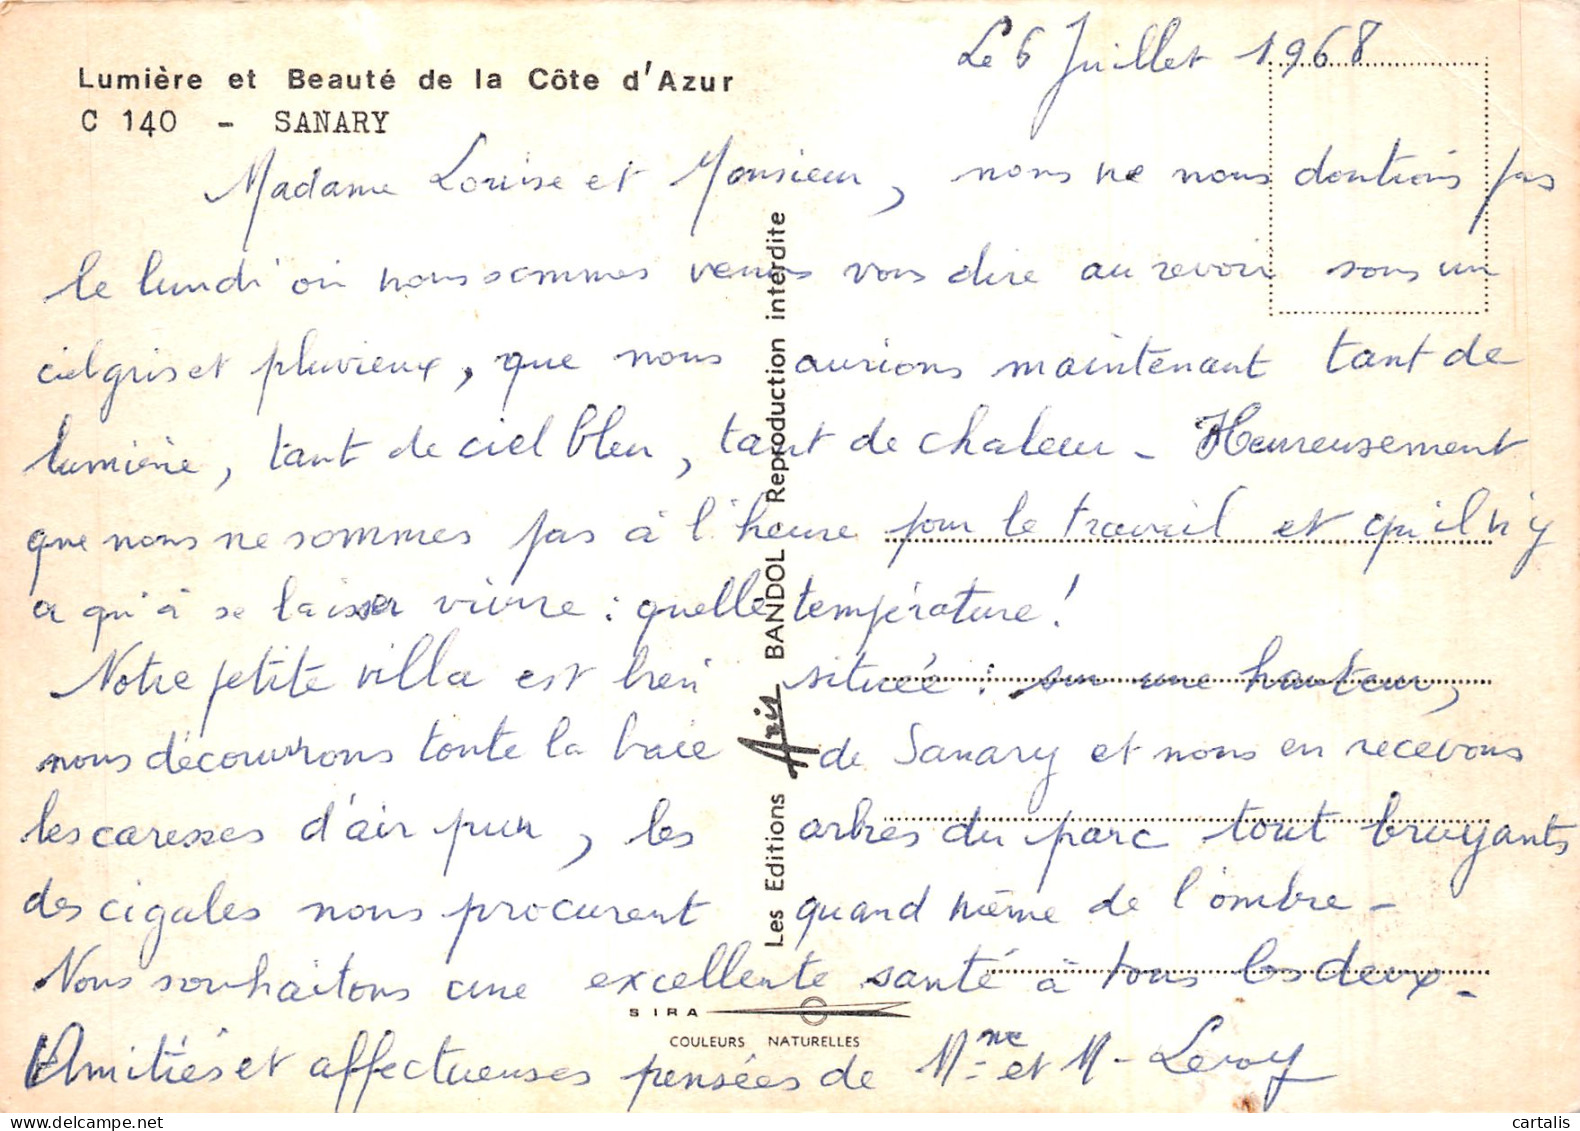 Le 6 Juillet 1968
Lumière et Beauté de la Côte d'Azur
C 140 - SANARY
Madame Louise et Monsieur, nous ne nous doutions pas
le lundi où nous sommes venus vous dire au revoir sous un
ciel gris et pluvieux, que nous aurions maintenant tant de
lumière, tant de ciel bleu, tant de chaleur - Heureusement
que nous ne sommes pas à l'heure pour le travail et qu'il n'y
a qu'à se laisser vivre : quelle température !
Notre petite villa est bien située : sur une hauteur,
nous découvrons toute la baie de Sanary et nous en recevons
les caresses d'air pur, les arbres du parc tout bruyants
des cigales nous procurent quand même de l'ombre -
Nous souhaitons une excellente santé à tous les deux -
Amitiés et affectueuses pensées de Mme et M - Leroy
Les Editions Aris BANDOL Reproduction interdite
SIRA
COULEURS NATURELLES
cartalis